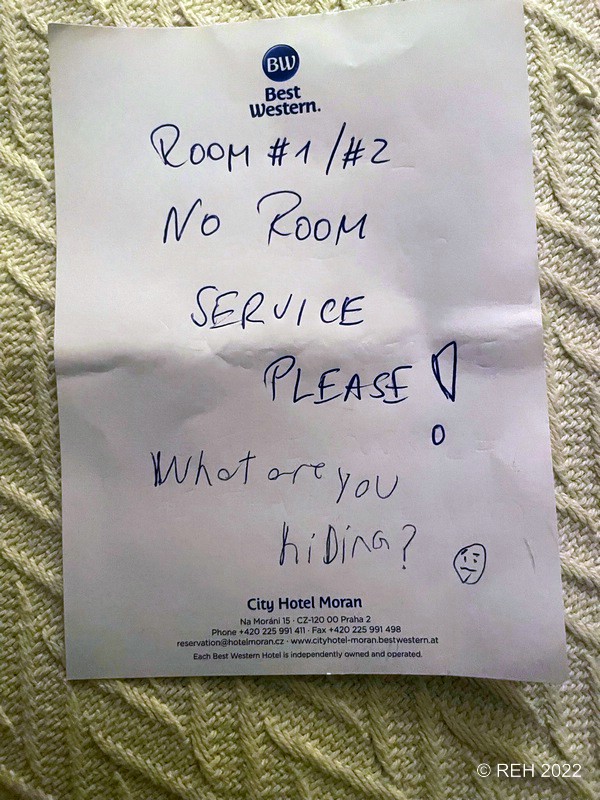 BW
Best
Western.
ROOM #1/#2
NO ROOM
SERVICE
PLEASE!
What are you
hiDing?
City Hotel Moran
Na Moráni 15 · CZ-120 00 Praha 2
Phone +420 225 991 411 · Fax +420 225 991 498
reservation@hotelmoran.cz · www.cityhotel-moran.bestwestern.at
Each Best Western Hotel is independently owned and operated.
© REH 2022